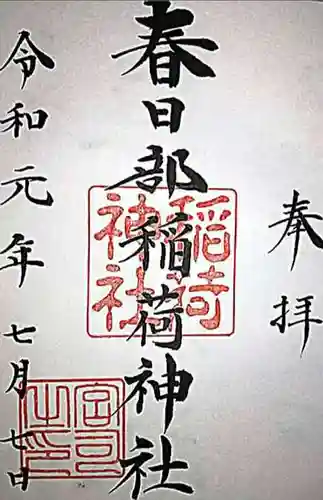 奉拝
春日部稲荷神社
稲荷神社
令和元年七月廿日
宮司之印